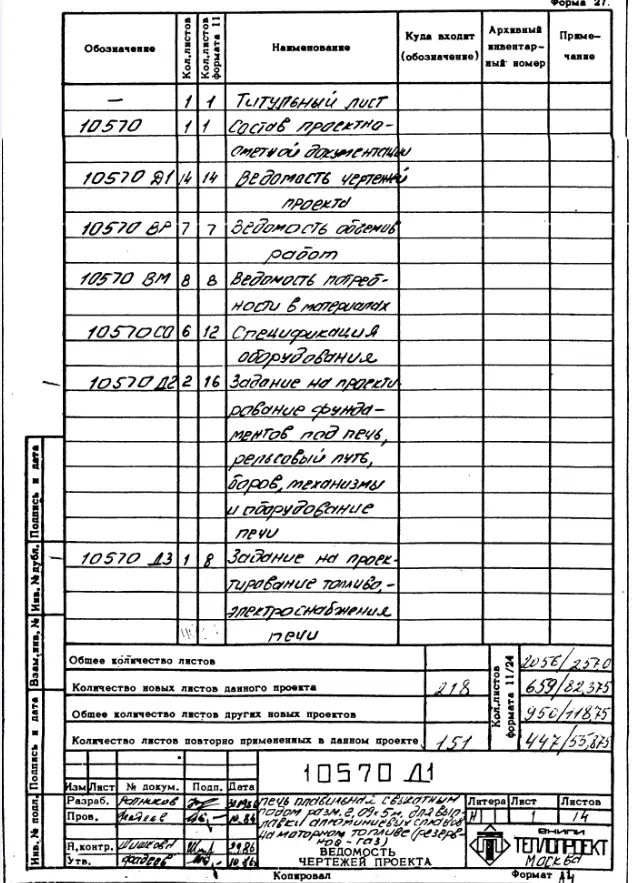 Форма 27.
Обозначение Кол.листов Кол.листов формата 11 Наименование Куда входит (обозначение) Архивный инвентарный номер Примечание
— 1 1 Титульный лист
10570 1 1 Состав проектно-
сметной документации
10570 Д1 14 14 Ведомость чертежей
проекта
10570 ВР 7 7 Ведомость объемов
работ
10570 ВМ 8 8 Ведомость потреб-
ности в материалах
10570 СО 6 12 Спецификация
оборудования
10570 Д2 2 16 Задание на проекти
рование фунда-
ментов под печь,
рельсовый путь,
боров, механизмы
и оборудование
печи
10570 Д3 1 8 Задание на проек-
тирование топливо,-
электроснабжения
печи
Общее количество листов 2056/257.0
Количество новых листов данного проекта 218 659/82,375
Общее количество листов других новых проектов 950/118,75
Количество листов повторно примененных в данном проекте 151 447/55,875
Кол.листов формата 11/24
10570 Д1
Изм Лист № докум. Подп. Дата
Разраб. Ратников
Пров. Фадеев 10.86
Н.контр. Шишков
Утв. Фадеев 10.86
Печь плавильная с выкатным
подом разм. для вып-
лавки алюминиевых сплавов
на моторном топливе (резерв-
ное - газ)
ВЕДОМОСТЬ
ЧЕРТЕЖЕЙ ПРОЕКТА
Литера Лист Листов
И 1 14
ВНИПИ
ТЕПЛОПРОЕКТ
Москва
Копировал Формат А4
Инв. № подл. Подпись и дата Взам.инв. № Инв. № дубл. Подпись и дата